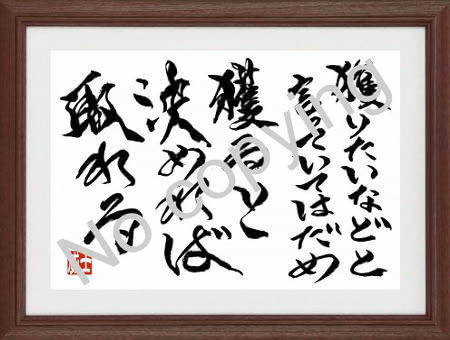 獲りたいなどと
言っていてはだめ
獲ると
決めれば
れる
No copying